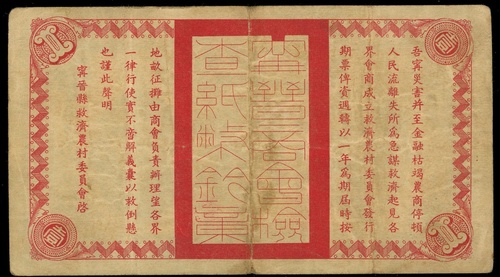 壹
吾寧災害并至金融枯竭農商停頓
人民流離失所為急謀救濟起見各
界會商成立救濟農村委員會發行
期票俾資週轉以一年為期屆時按
會檢
查紙幣鈐章
地畝征攤由商會負責辦理望各界
一律行使實不啻解義囊以救倒懸
也謹此聲明
寧晉縣救濟農村委員會啓
壹